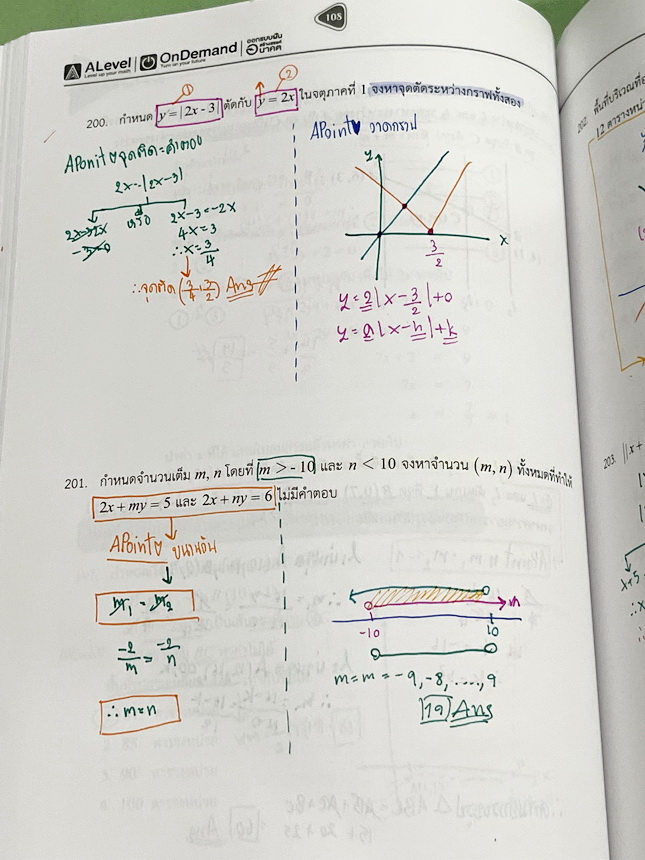 108
ALevel
Level up your math
OnDemand
Turn on your future
ออกแบบฝัน
สร้างสรรค์
อนาคต
① ②
200. กำหนด y = |2x - 3| ตัดกับ y = 2x ในจตุภาคที่ 1 จงหาจุดตัดระหว่างกราฟทั้งสอง
จุดตัด = คำตอบ
2x = |2x-3|
2x-3=2x หรือ 2x-3=-2x
-3=0 4x=3
∴x=3/4
∴จุดตัด (3/4, 3/2) Ans
APoint วาดกราฟ
y
x
3/2
y = 2|x-3/2|+0
y = a|x-h|+k
201. กำหนดจำนวนเต็ม m, n โดยที่ m > -10 และ n < 10 จงหาจำนวน (m, n) ทั้งหมดที่ทำให้
2x + my = 5 และ 2x + ny = 6 ไม่มีคำตอบ
APoint ขนานกัน
m₁ = m₂
-2/m = -2/n
∴ m=n
m
-10 10
m=m = -9, -8, ...., 9
19 Ans
202.
12 ตารางหน่
203. ||x+
x+5